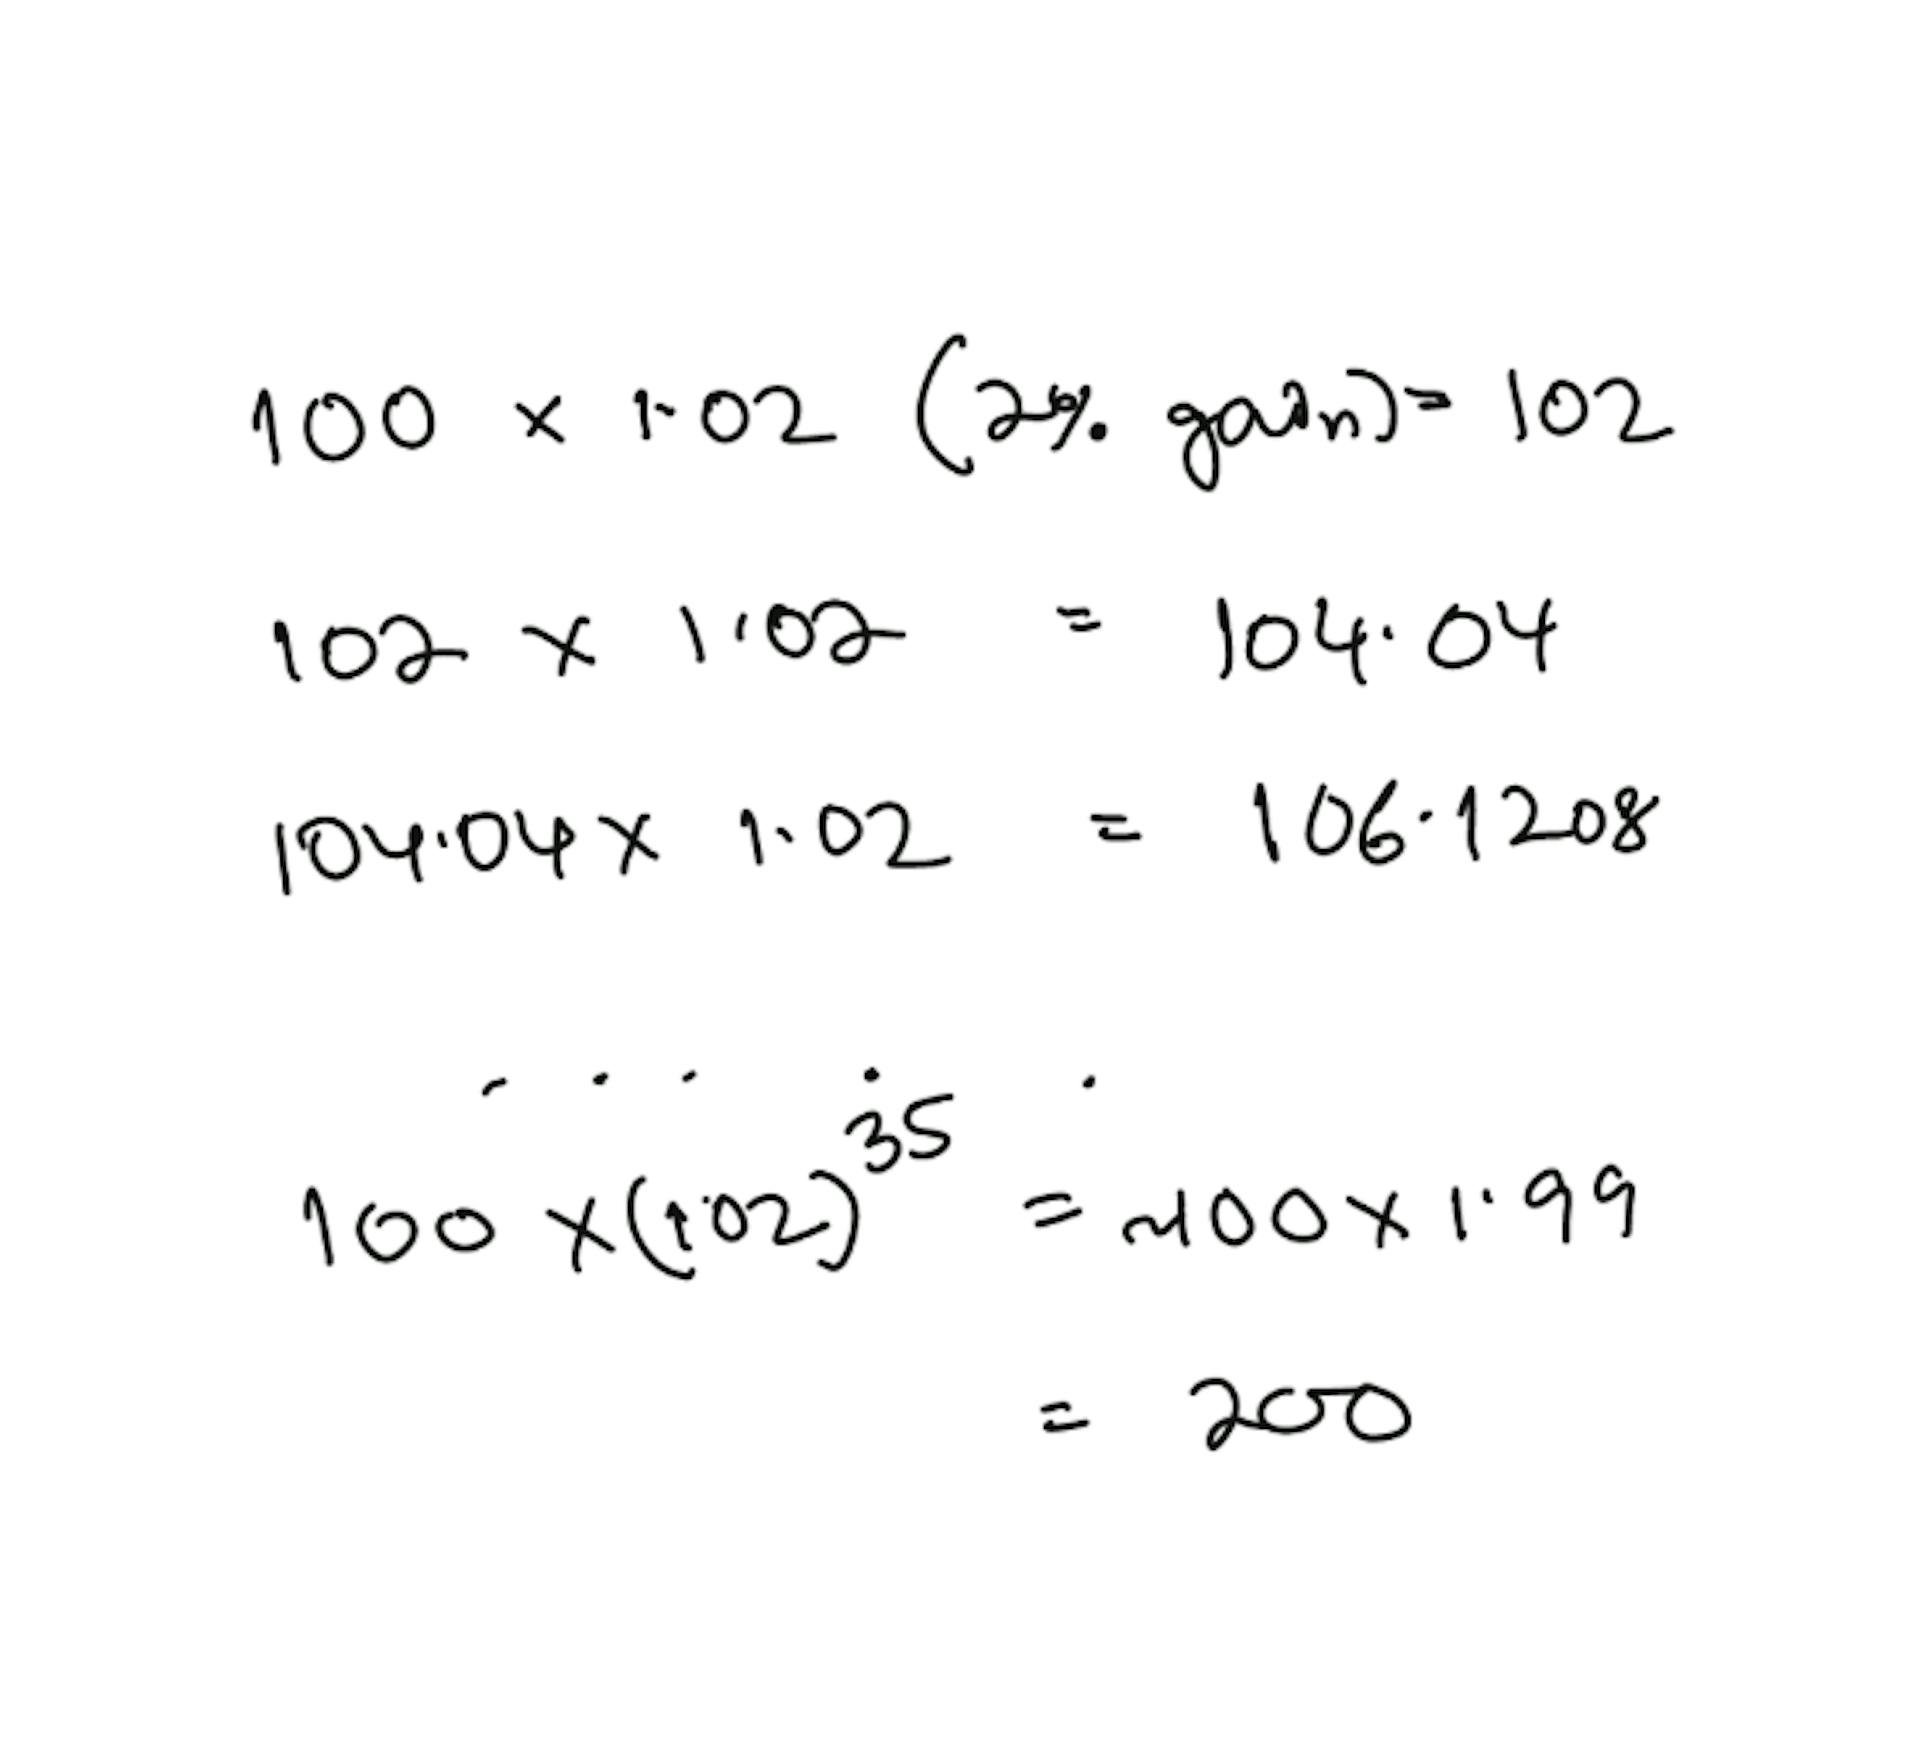 100 × 1.02 (2% gain) = 102
102 × 1.02 = 104.04
104.04 × 1.02 = 106.1208
- . . . .
100 × (1.02)^35 = ~100 × 1.99
= 200